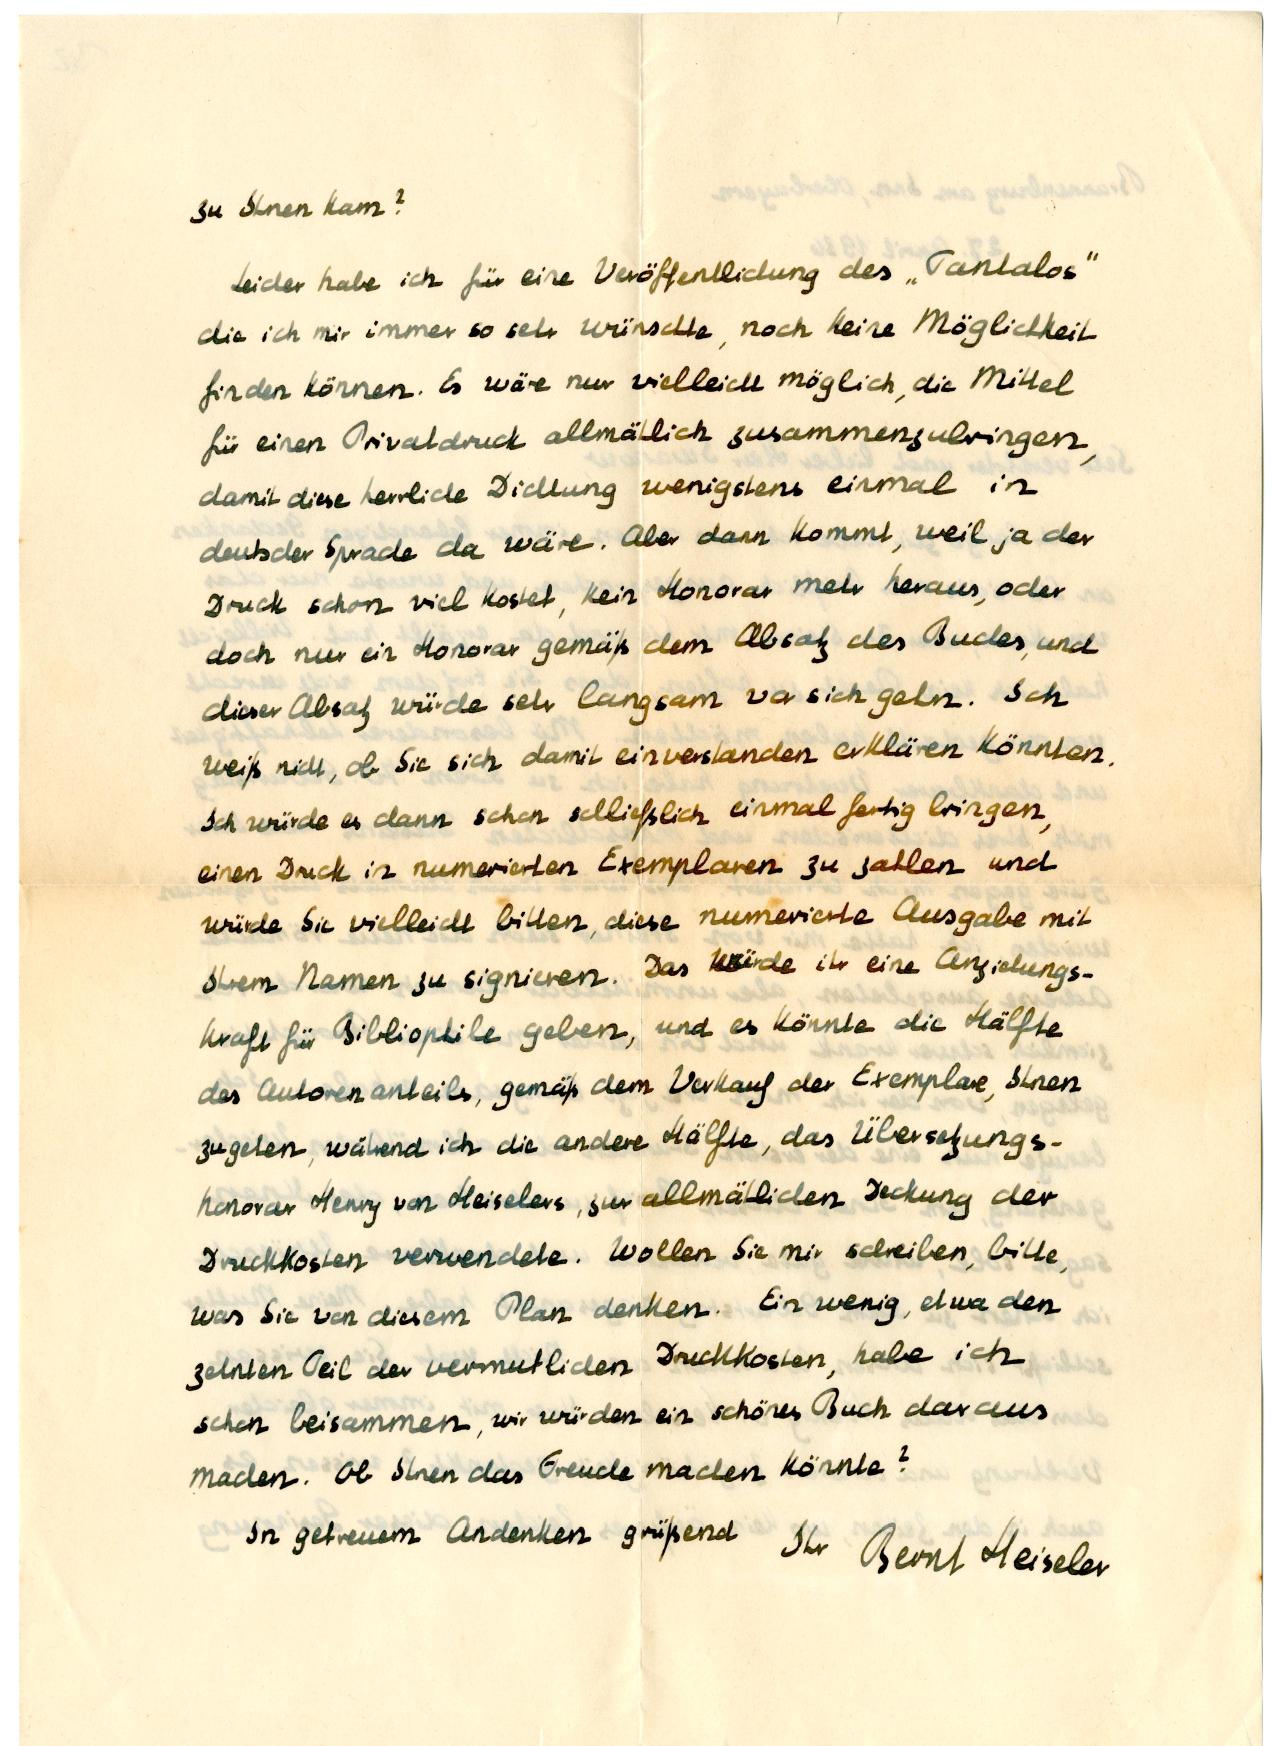 zu Ihnen kam?
Leider habe ich für eine Veröffentlichung des „Tantalos“
die ich mir immer so sehr wünschte, noch keine Möglichkeit
finden können. Es wäre nur vielleicht möglich, die Mittel
für einen Privatdruck allmählich zusammenzubringen,
damit diese herrliche Dichtung wenigstens einmal in
deutscher Sprache da wäre. Aber dann kommt, weil ja der
Druck schon viel kostet, kein Honorar mehr heraus, oder
doch nur ein Honorar gemäß dem Absatz des Buches, und
dieser Absatz würde sehr langsam vor sich gehn. Ich
weiß nicht, ob Sie sich damit einverstanden erklären könnten.
Ich würde es dann schon schließlich einmal fertig bringen,
einen Druck in numerierten Exemplaren zu zahlen und
würde Sie vielleicht bitten, diese numerierte Ausgabe mit
Ihrem Namen zu signieren. Das würde ihr eine Anziehungs-
kraft für Bibliophile geben, und es könnte die Hälfte
des Autorenanteils, gemäß dem Verkauf der Exemplare, Ihnen
zugehen, während ich die andere Hälfte, das Übersetzungs-
honorar Henry von Heiselers, zur allmählichen Deckung der
Druckkosten verwendete. Wollen Sie mir schreiben, bitte,
was Sie von diesem Plan denken. Ein wenig, etwa den
zehnten Teil der vermutlichen Druckkosten, habe ich
schon beisammen, wir würden ein schönes Buch daraus
machen. Ob Ihnen das Freude machen könnte?
In getreuem Andenken grüßend Ihr Bernt Heiseler